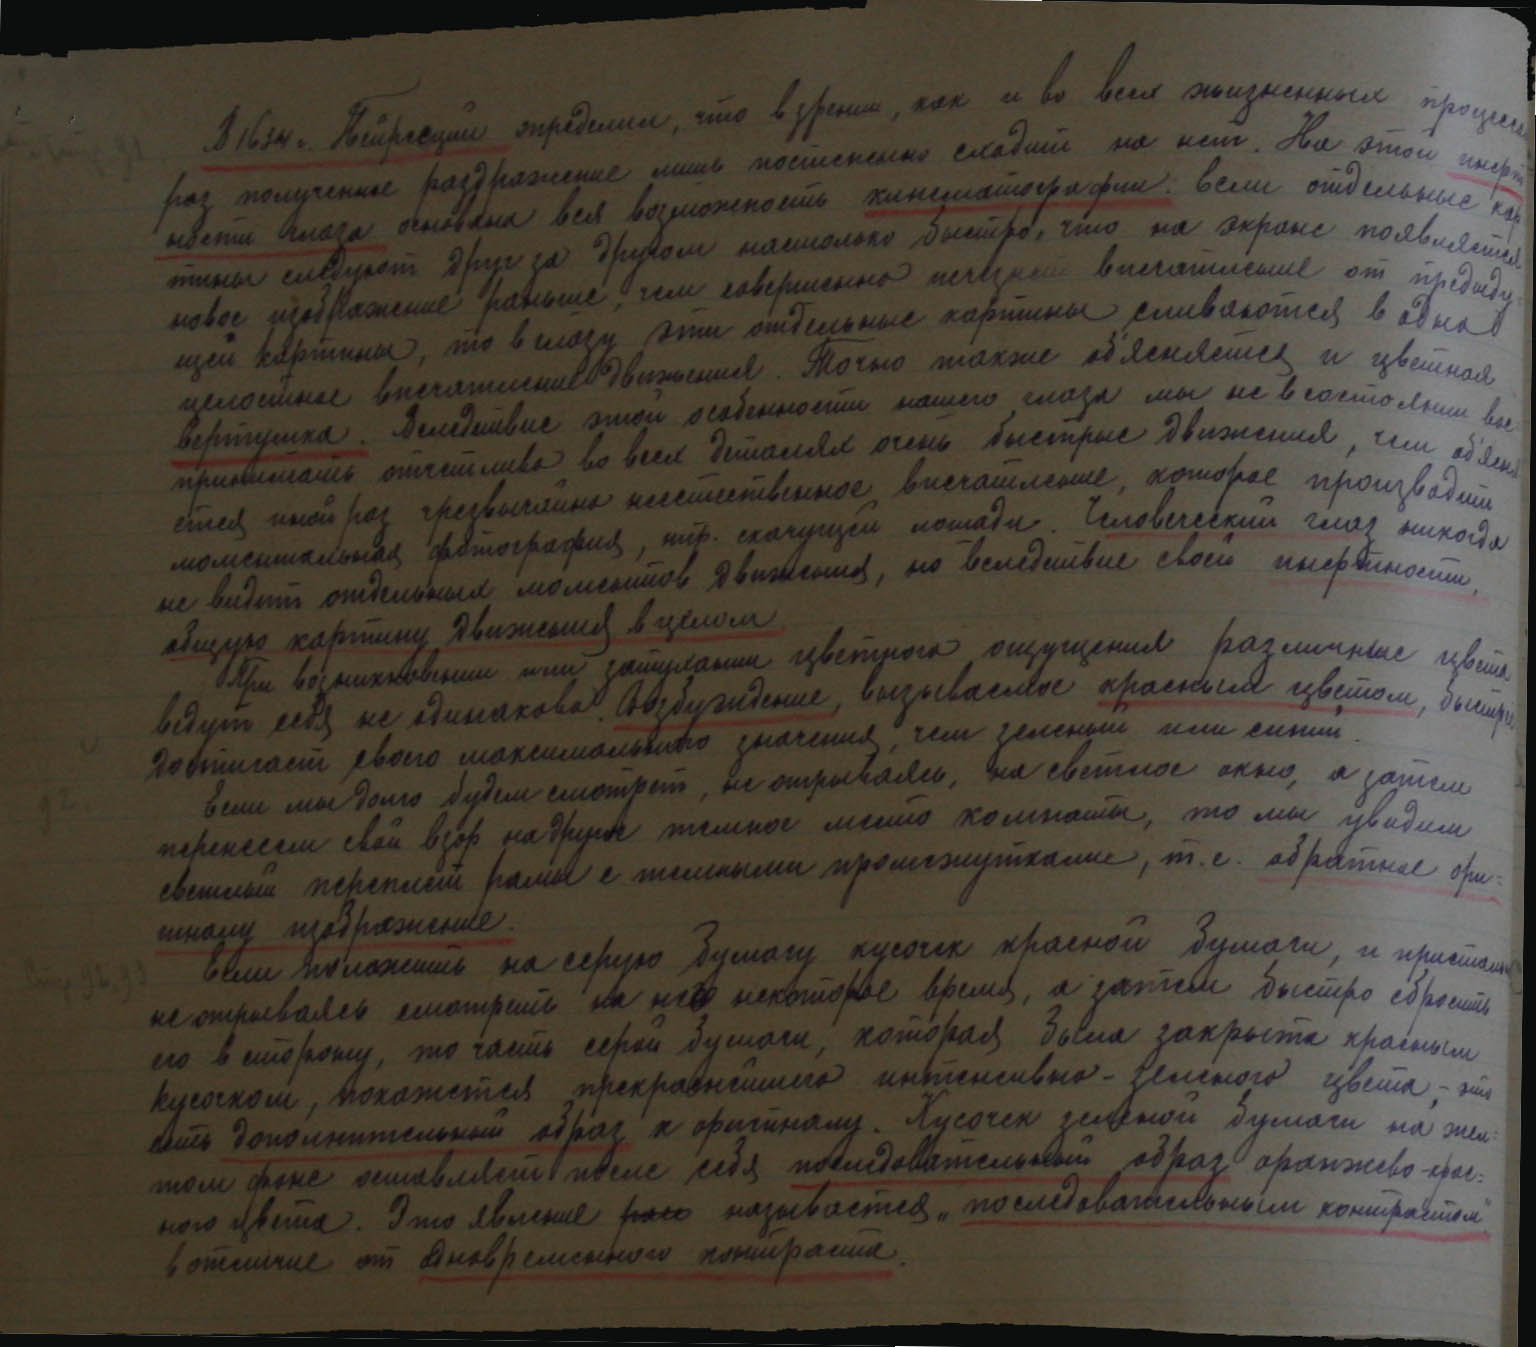 В 1634 г. Пейресций определил, что в зрении, как и во всех жизненных процессах
раз полученное раздражение лишь постепенно сходит на нет. На этой инерт
ности глаза основана вся возможность кинематографии: если отдельные кар
тины следуют друг за другом настолько быстро, что на экране появляется
новое изображение раньше, чем совершенно исчезнет впечатление от предыду-
щей картины, то в глазу эти отдельные картины сливаются в одно
целостное впечатление движения. Точно также об'ясняется и цветная
вертушка. Вследствие этой особенности нашего глаза мы не в состоянии вос
принимать отчетливо во всех деталях очень быстрые движения, чем об'ясня
ется иной раз чрезвычайно неестественное впечатление, которое производит
моментальная фотография, нпр. скачущей лошади. Человеческий глаз никогда
не видит отдельных моментов движения, но вследствие своей инертности,
общую картину движения в целом
При возникновении или затухании цветного ощущения различные цвета
ведут себя не одинаково. Возбуждение, вызываемое красным цветом, быстрее
достигает своего максимального значения, чем зеленый или синий.
Если мы долго будем смотреть, не отрываясь, на светлое окно, а затем
перенесем свой взор на другое темное место комнаты, то мы увидим
светлый переплет рамы с темными промежутками, т.е. обратное ори-
тному изображение.
Если положить на серую бумагу кусочек красной бумаги, и пристально
не отрываясь смотреть на него некоторое время, а затем быстро сбросить
его в сторону, то часть серой бумаги, которая была закрыта красным
кусочком, покажется прекраснейшего интенсивно-зеленого цвета, - это
есть дополнительный образ к оригиналу. Кусочек зеленой бумаги на жел-
том фоне оставляет после себя последовательный образ оранжево-крас-
ного цвета. Это явление называется "последовательным контрастом"
в отличие от одновременного контраста.
92.
Стр. 92, 93